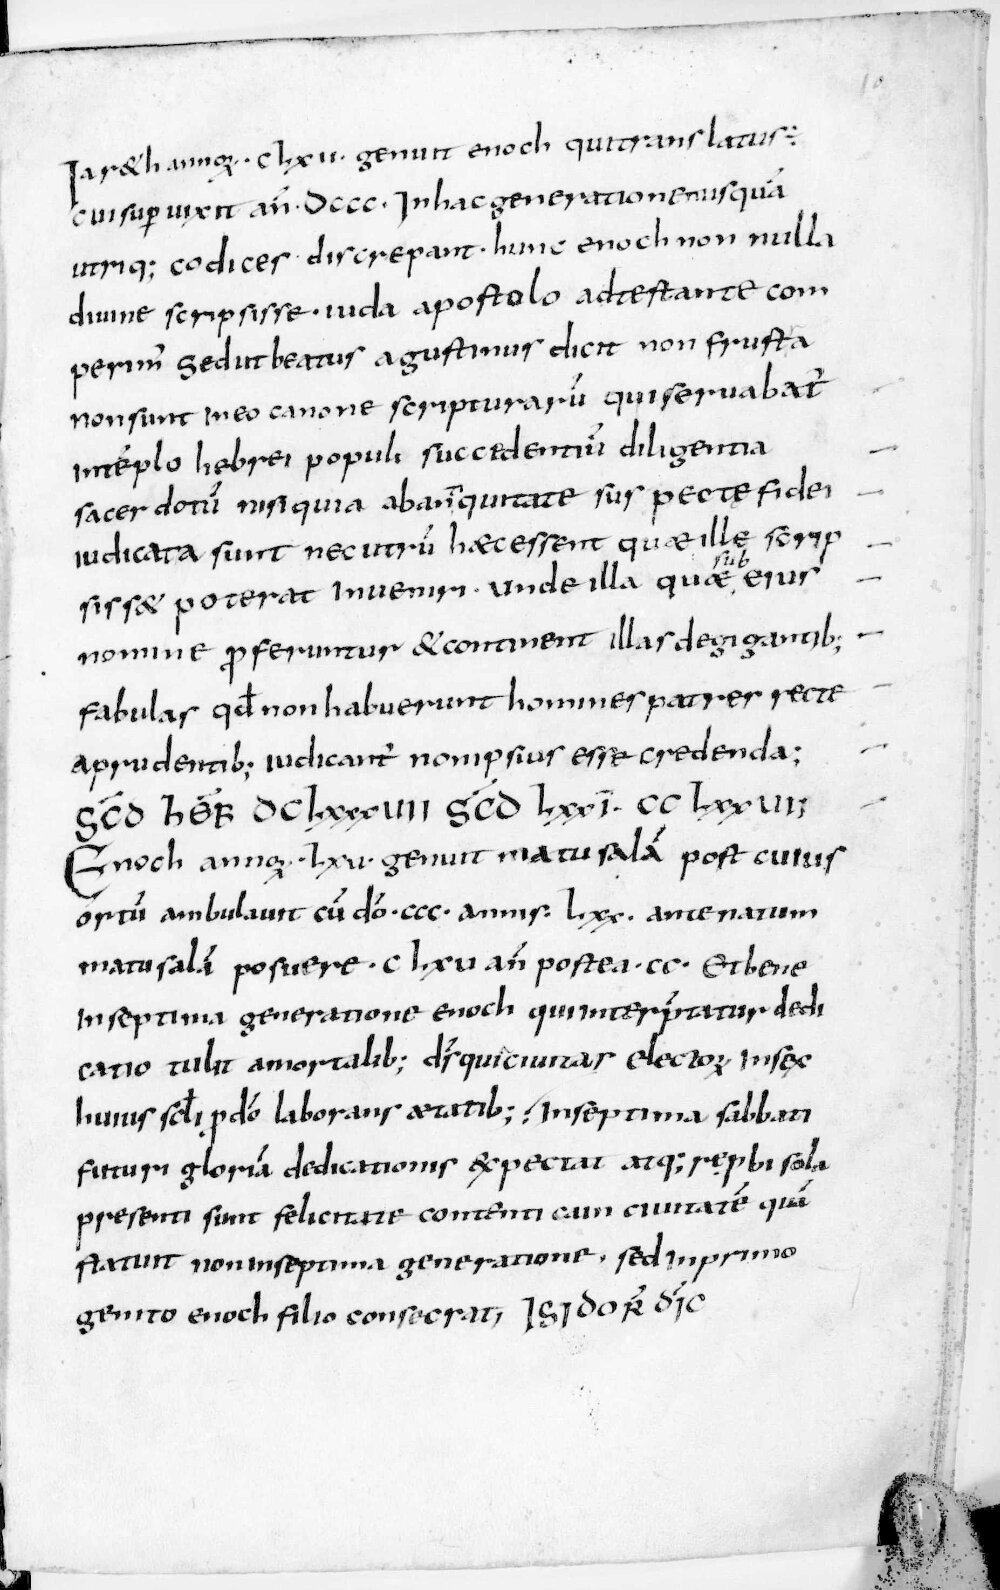 10
Iar&h annoꝝ · clxii · genuit enoch quitranslatus:
cuisuꝑ uixit an̄ · dccc · Inhac generatione nusquā
utriq; codices discrepant · hunc enoch non nulla
diuine scripsisse · iuda apostolo adtestante com
perim̄ Sedut beatus agustinus dicit non frusta
nonsunt ineo canone scripturarū quiseruabat̄
intēplo hebrei populi succedentiū diligentia
sacerdotū nisi quia abantiquitate suspectę fidei
iudicata sunt necutrū hæcessent quæ illę scrip
siss& poterat Inueniri · unde illa quæ sub eius
nomine ꝓferuntur &continent Illas degigantib;
fabulas qđ non habuerunt homines patres recte
aprudentib; iudicant̄ nonipsius esse credenda;
Sc̄d hēb̄ dclxxxuii Sc̄d lxxī · cclxxuii
Enoch annoꝝ · lxu · genuit matusalā post cuius
ortū ambulauit cū dō · ccc · annis · lxx · antenatum
matusalā posuere · clxu an̄ postea · cc · Etbene
Inseptima generatione enoch quiinterp̄tatur dedi
catio tulit amortalib; dr̄ quiciuitas electoꝝ Insex
huius scłi ꝓ dō laborans ætatib; Inseptima sabbati
futuri gloriā dedicationis expectat atq; repbi sola
presenti sunt felicitate contenti cain ciuitatē quā
statuit noninseptima generatione · sed Inprimo
genito enoch filio consecrati ISIDOR̄ DĪC